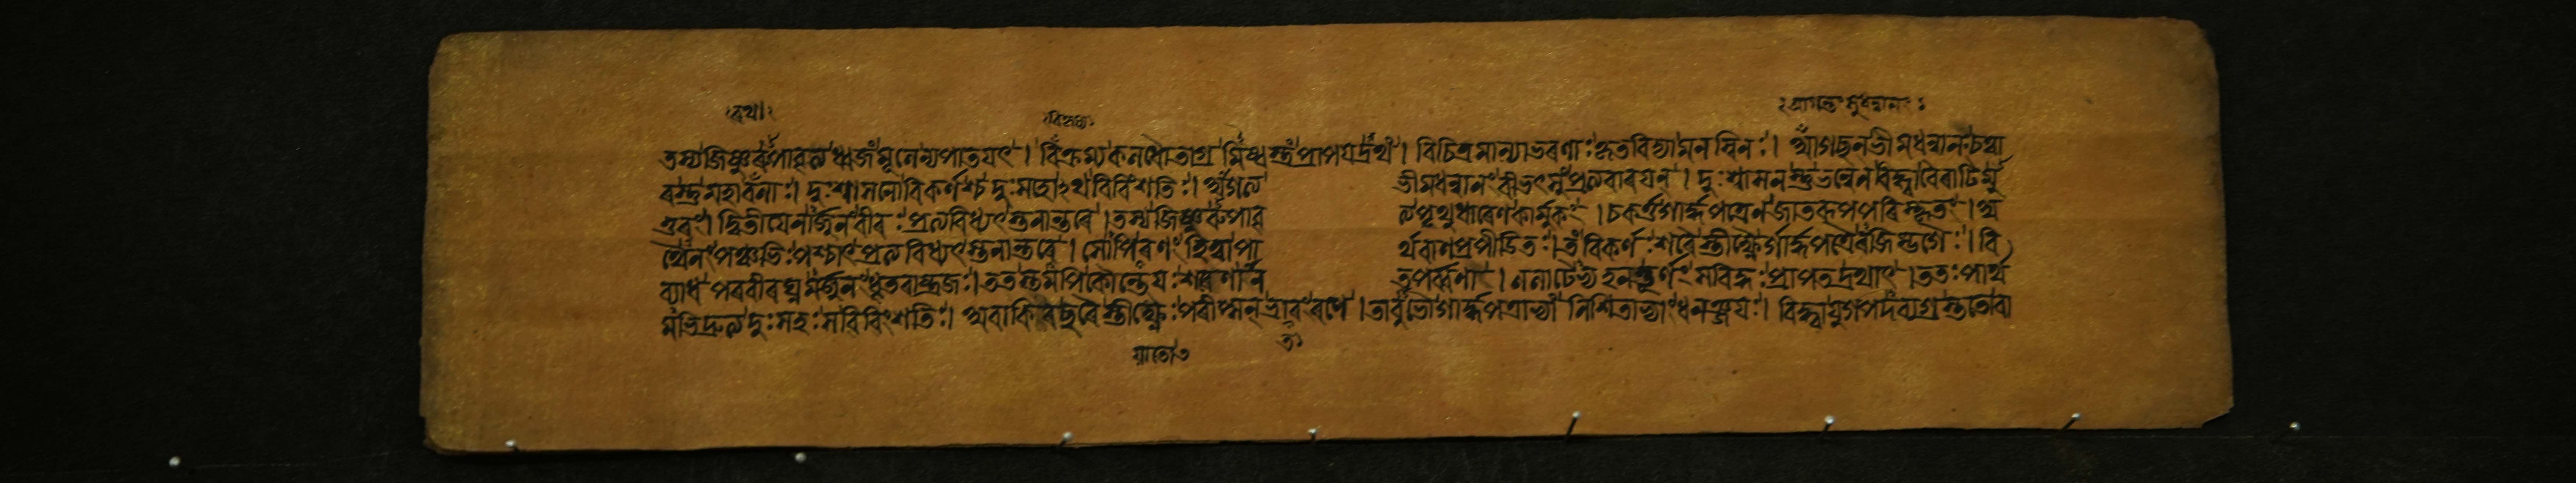 তস্য জিষ্ণুরুপাবৃত্য ধ্বজমূলে ন্যপাতযৎ । বিচিত্রমাল্যাভরণাঃ কৃতবিদ্যামনস্বিনঃ । আগছন ভীমধন্বানং চত্বা
রস্তু মহাবলাঃ । দুঃশাসনো বিকর্ণশ্চ দুঃসহোঽথ বিবিংশতিঃ । আগত্য ভীমধন্বানং বীভৎসুং প্রত্যবারযন্ । দুঃশাসনস্তু ভল্লেন বিদ্ধ্বা বৈরাটিমু
ত্তরং । দ্বিতীযেনার্জুনং বীরঃ প্রত্যবিধ্যৎ স্তনান্তরে । তস্য জিষ্ণুরুপাবৃ ত্য পৃথুধারেণ কার্মুকং । চকর্ত্ত গার্দ্ধপত্রেন জাতরূপপরিস্কৃতং । অ
থৈনং পঞ্চভিঃ পশ্চাৎ প্রত্যবিধ্যৎ স্তনান্তরে । রণং হিত্বা পা র্থবাণপ্রপীডিতঃ । তং বিকর্ণঃ শরৈস্তীক্ষ্ণৈর্গার্দ্ধপত্রৈরজিহ্মগৈঃ । বি
ব্যাধ পরবীরঘ্নমর্জুনং ধৃতরাষ্ট্রজঃ । ততস্তমপি কৌন্তেযঃ শরেণান তপর্ব্বণা । ললাটেভ্যহনত্তূর্ণং স বিদ্ধঃ প্রাপতদ্রথাৎ । ততঃ পার্থ
মভিদ্রুত্য দুঃসহঃ সবিবিংশতিঃ । অবাকিরছরৈস্তীক্ষ্ণৈঃ পরীপ্সন্ ভ্রাতরং রণে । তাবুভৌ গার্দ্ধপত্রাভ্যাং নিশিতাভ্যাং ধনঞ্জযঃ । বিদ্ধ্বা যুগপদব্যগ্রস্তযোর্বা
যাতো